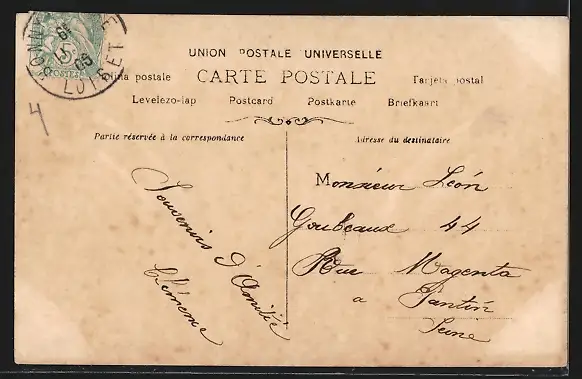 5
POSTES
05
LOIRET
UNION POSTALE UNIVERSELLE
postale CARTE POSTALE Tarjeta postal
Levelezo-lap Postcard Postkarte Briefkaart
Partie réservée à la correspondance
Adresse du destinataire
4
Souvenirs d'Amitié
Clémence
Monsieur Léon
Goubeaux 44
Rue Magenta
a Pantin
Seine